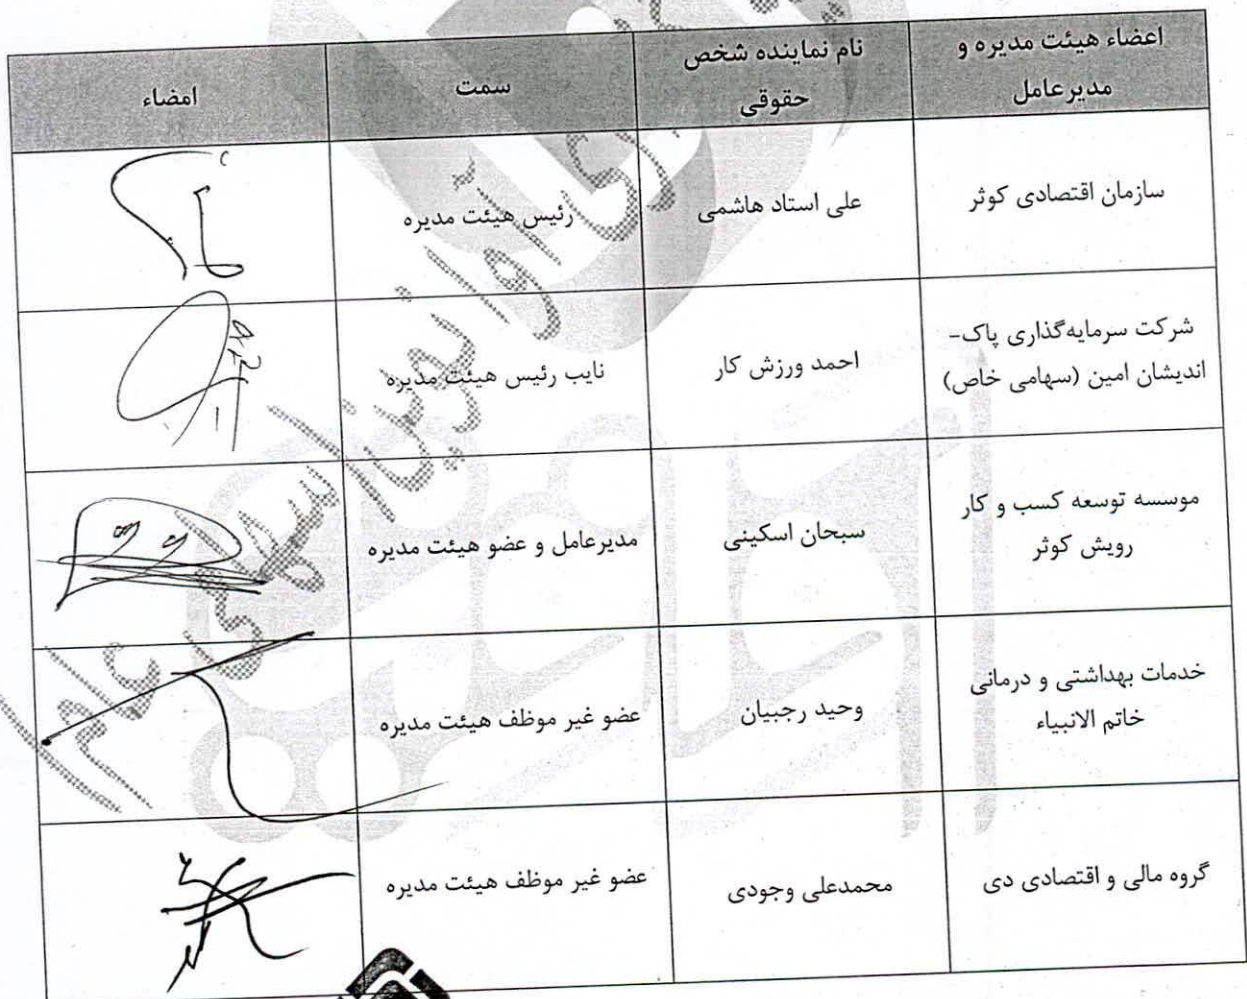 اعضاء هیئت مدیره و
مدیرعامل
نام نماینده شخص
حقوقی
سمت
امضاء
سازمان اقتصادی کوثر
علی استاد هاشمی
رئیس هیئت مدیره
شرکت سرمایه‌گذاری پاک-
اندیشان امین (سهامی خاص)
احمد ورزش کار
نایب رئیس هیئت مدیره
موسسه توسعه کسب و کار
رویش کوثر
سبحان اسکینی
مدیرعامل و عضو هیئت مدیره
خدمات بهداشتی و درمانی
خاتم الانبیاء
وحید رجبیان
عضو غیر موظف هیئت مدیره
گروه مالی و اقتصادی دی
محمدعلی وجودی
عضو غیر موظف هیئت مدیره